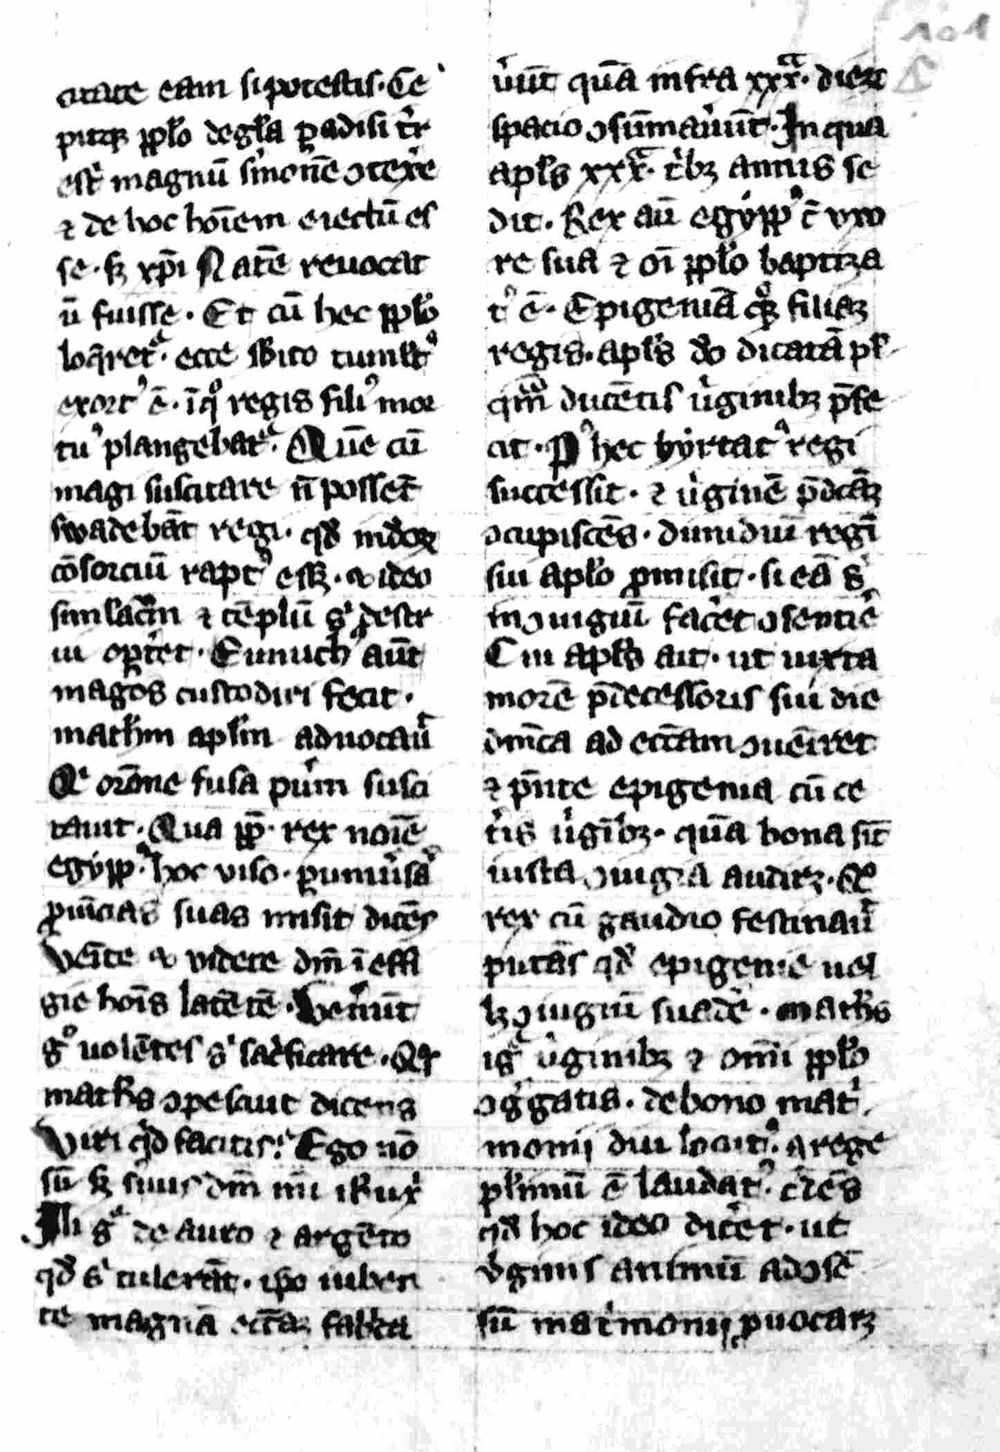 101
citate eam si potestis. Ce
pitq; pplo de gla padisi t͛r
estͥ magnū smonē ↄtexͤre
⁊ de hoc hoīem eiectū es
se. sꝫ xp̄i Natē reuocat
ū fuisse. Et cū hec pplo
loqretᷣ. ecce sbito tumltꝰ
exortꝰ ē. ī qͦ regis filiꝰ mor
tuꝰ plangebatᷣ. Quē cū
magi suscitare ñ possēt
swadebāt regi. qd̓ in deoꝝ
cōsorciū raptꝰ essꝫ. ⁊ ideo
simlacm ⁊ tēplū sͥ destr
ui optet. Eunuchꝰ aūt
magos custodiri fecit.
mathm aplm aduocauͥ
Qͥ orōne fusa puͤm susci
tauit. Qua pp̄. rex noīe
egyppꝰ hoc viso. p uniuͤsaˢ
ꝓuīcias suas misit dicēs
Venīte ⁊ videte dm̄ ī effi
gie hoīs latētē. Veneͬūt
gͦ uolētes sͥ sacͥficare. Qͦs
maths ↄpescuit dicens
Viri qd̓ facitis? Ego nō
sū sꝫ suus dm̄ mi ihu xͥ
Illi gͦ de auro ⁊ argēto
qd̓ sͥ tulerāt. ipo iuben
te magnā ecc̄az fabͥca
uͤūt quā infra xxxᵃ. dieꝝ
spacio ↄsūmauͤūt. In qua
apls xxxᵃ. tͥbꝫ annis se
dit. Rex aū egyppꝰ c̄ uxo
re sua ⁊ oī pplo baptiza
tꝰ ē. Epigeniā qͦꝫ filiaꝫ
regis. apls dō dicatā pl
qᵃm ducētis uͥginibꝫ p̄fe
cit. Pꝰ hec hyrtatꝰ regi
successit. ⁊ uͥginē p̄dcāꝫ
ↄcupiscēs. dimidiū regī
sui aplo ꝓmisit. si eā sͥ
in ↄiugiū facet ↄsentiͤ
Cui apls ait. ut iuxta
morē p̄decessoris sui die
dnīca ad ecc̄am ↄuēiret
⁊ p̄nte epigenia cū ce
tͥis uͥgibꝫ. quā bona sīt
iusta ↄiugia audiꝫ. Qͦ
rex cū gaudio festinauͥ
putās qd̓ epigenie uel
lꝫ ↄiugiū suadē. maths
igͥ uͥginibꝫ ⁊ omi pplo
ↄgͤgatis. de bono matͥ
monij diu locutꝰ. a rege
plimū ē laudatꝰ. cͤdēs
qd̓ hoc ideo dicet. ut
vͥginis animū ad ↄsē
sū matͥmonij ꝓuocarꝫ